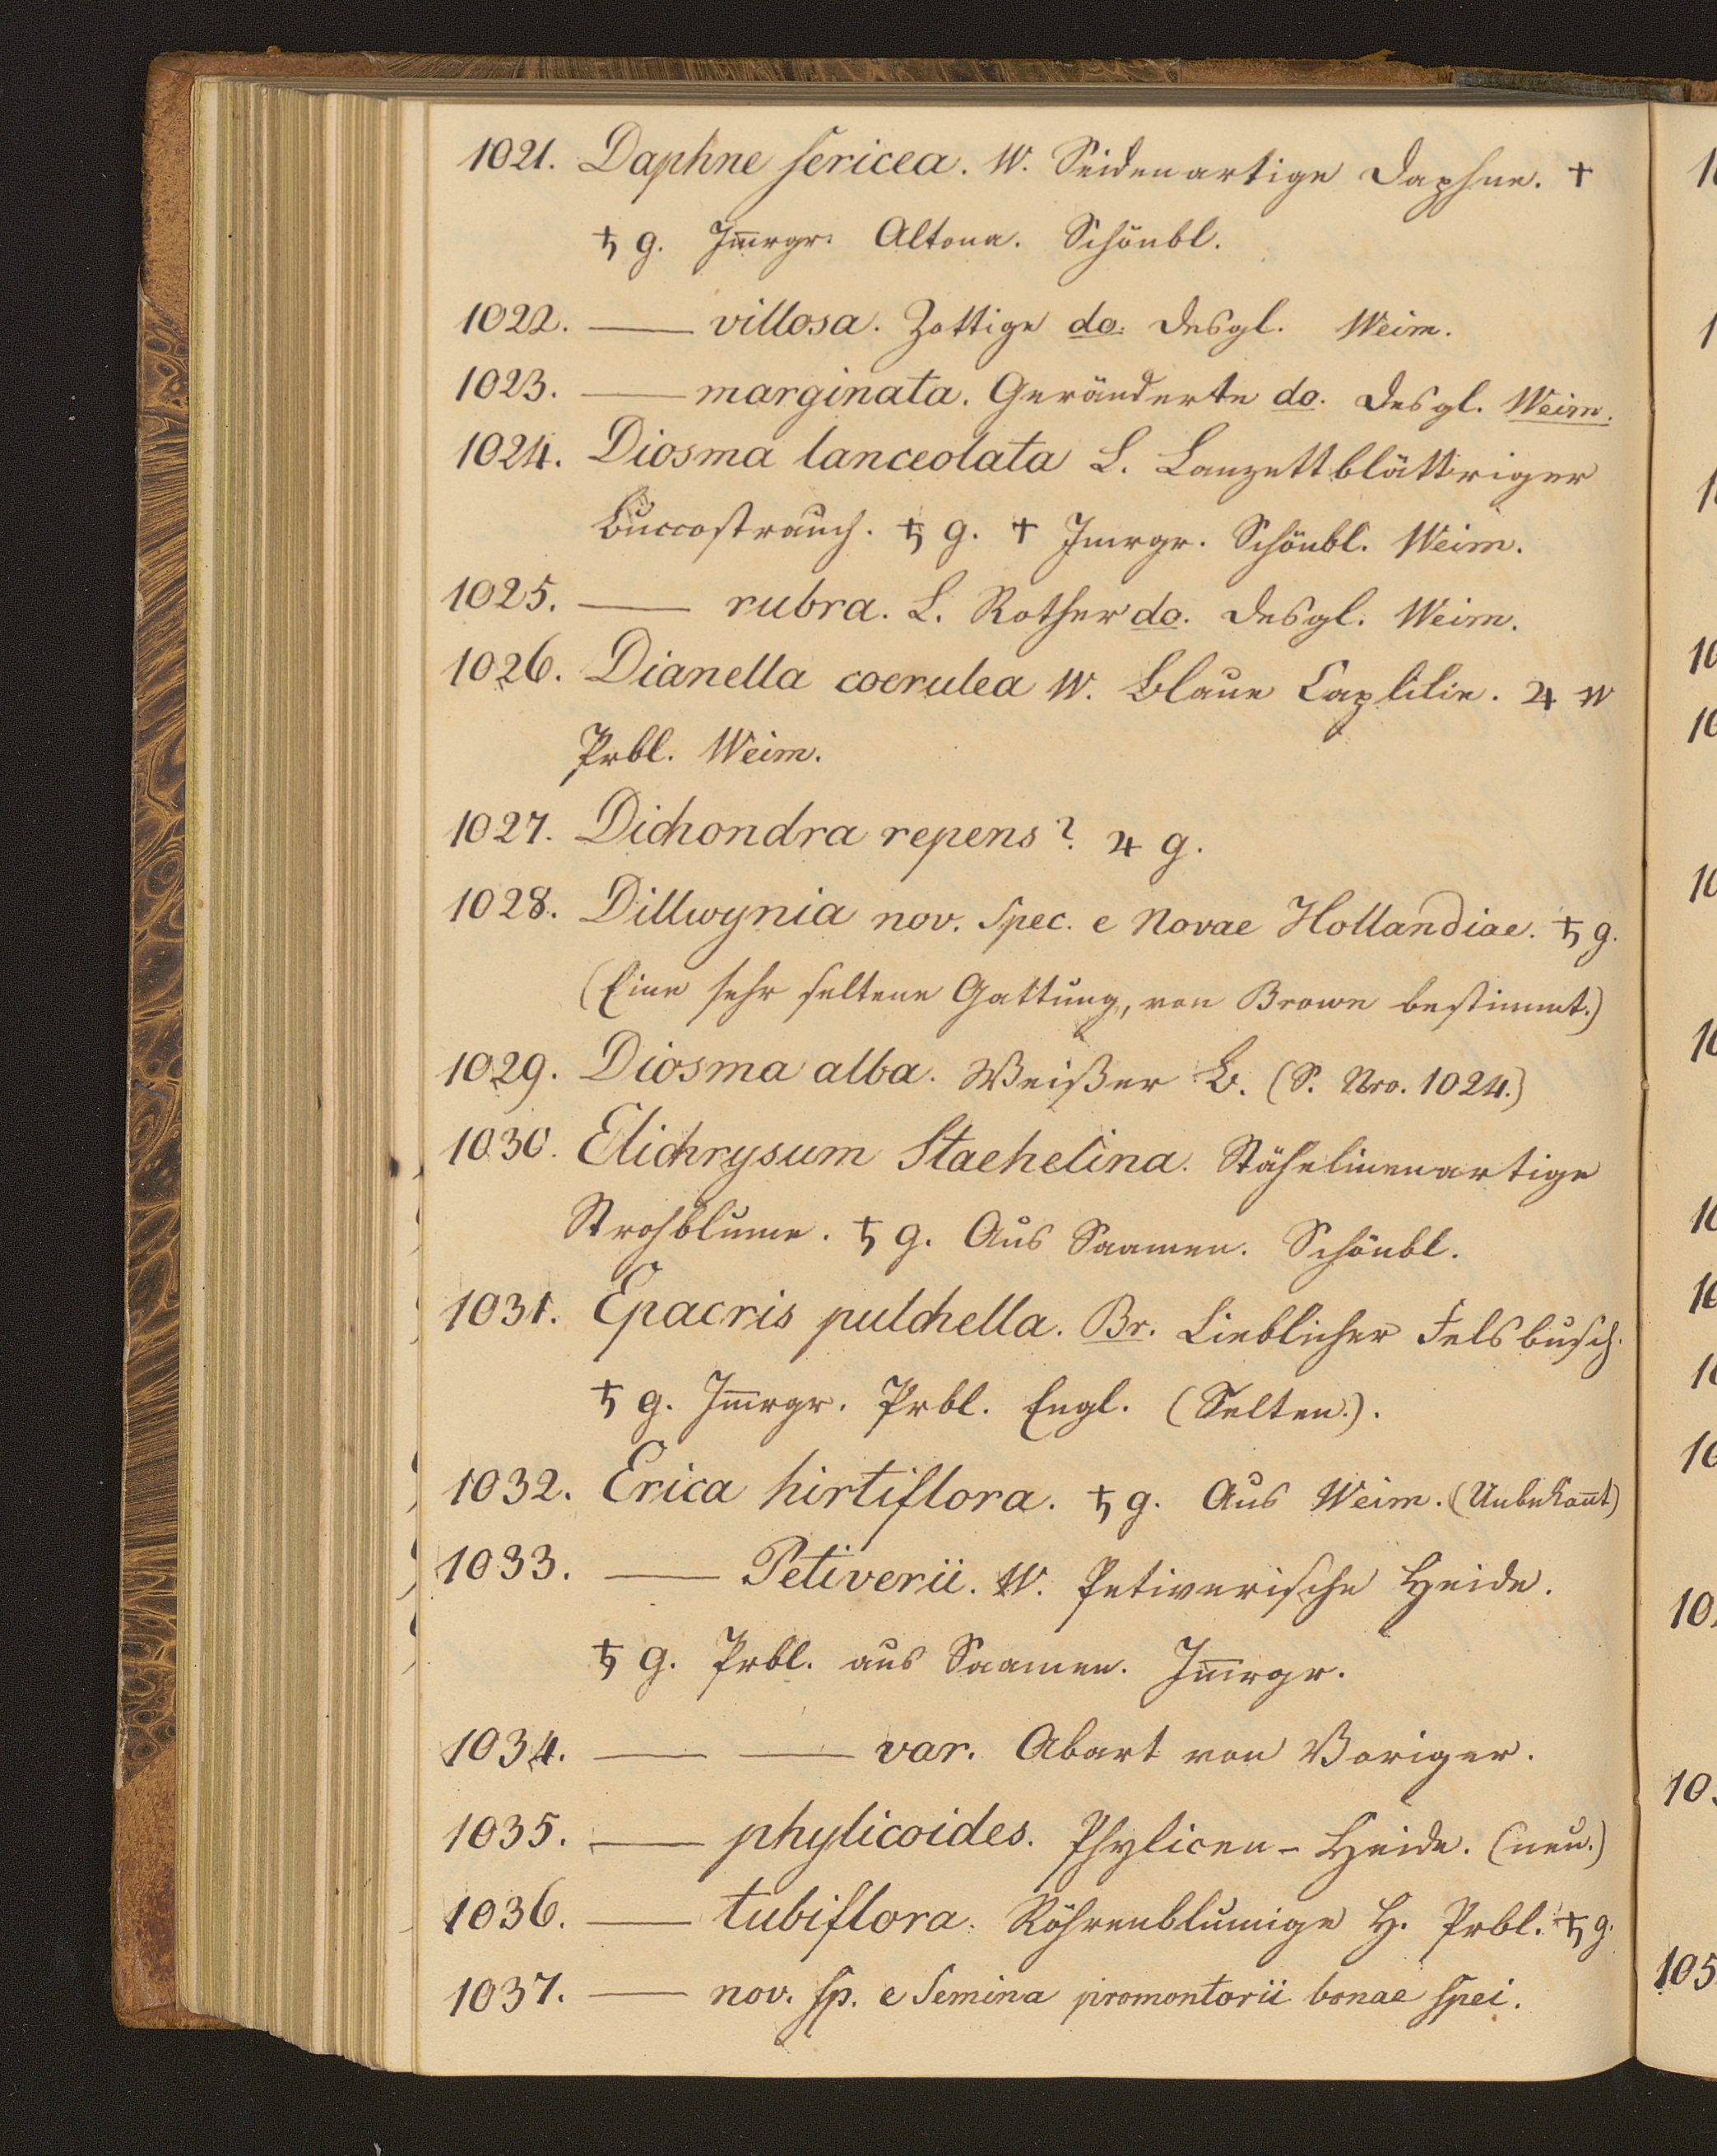 1021. Daphne sericea. W. Seidenartige Daphne. †
♄ g. Im̅rgr. Altona. Schönbl.
1022. —— villosa. Zottige do. desgl. Weim.
1023. —— marginata. Geränderte do. desgl. Weim.
1024. Diosma lanceolata L. Lanzettblättriger
Buccostrauch. ♄ g. † Imrgr. Schönbl. Weim.
1025. —— rubra. L. Rother do. desgl. Weim.
1026. Dianella coerulea W. Blaue Caplilie. ♃ w
Prbl. Weim.
1027. Dichondra repens? ♃ g.
1028. Dillwynia nov. Spec. e Novae Hollandiae. ♄ g.
(Eine sehr seltene Gattung, von Brown bestimmt.)
1029. Diosma alba. Weißer B. (S. Nro. 1024.)
1030. Elichrysum Staehelina. Stähelinenartige
Strohblume. ♄ g. Aus Saamen. Schönbl.
1031. Epacris pulchella. Br. Lieblicher Felsbusch.
♄ g. Im̅rgr. Prbl. Engl. (Selten.).
1032. Erica hirtiflora. ♄ g. Aus Weim. (Unbekan̅t)
1033. —— Petiverii. W. Petiverische Heide.
♄ g. Prbl. aus Saamen. Im̅rgr.
1034. —— —— var. Abart von Voriger.
1035. —— phylicoides. Phylicen-Heide. (neu.)
1036. —— tubiflora. Röhrenblumige H. Prbl. ♄ g.
1037. —— nov. sp. e Semina promontorii bonae spei.